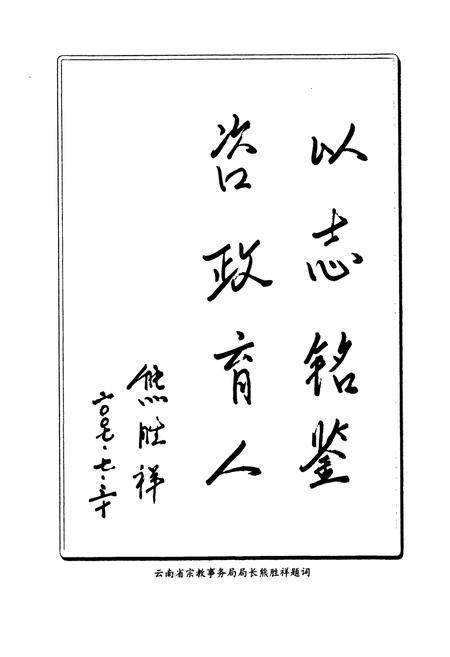 以志铭鉴
咨政育人
熊胜祥
二〇〇七·七·三十
云南省宗教事务局局长熊胜祥题词